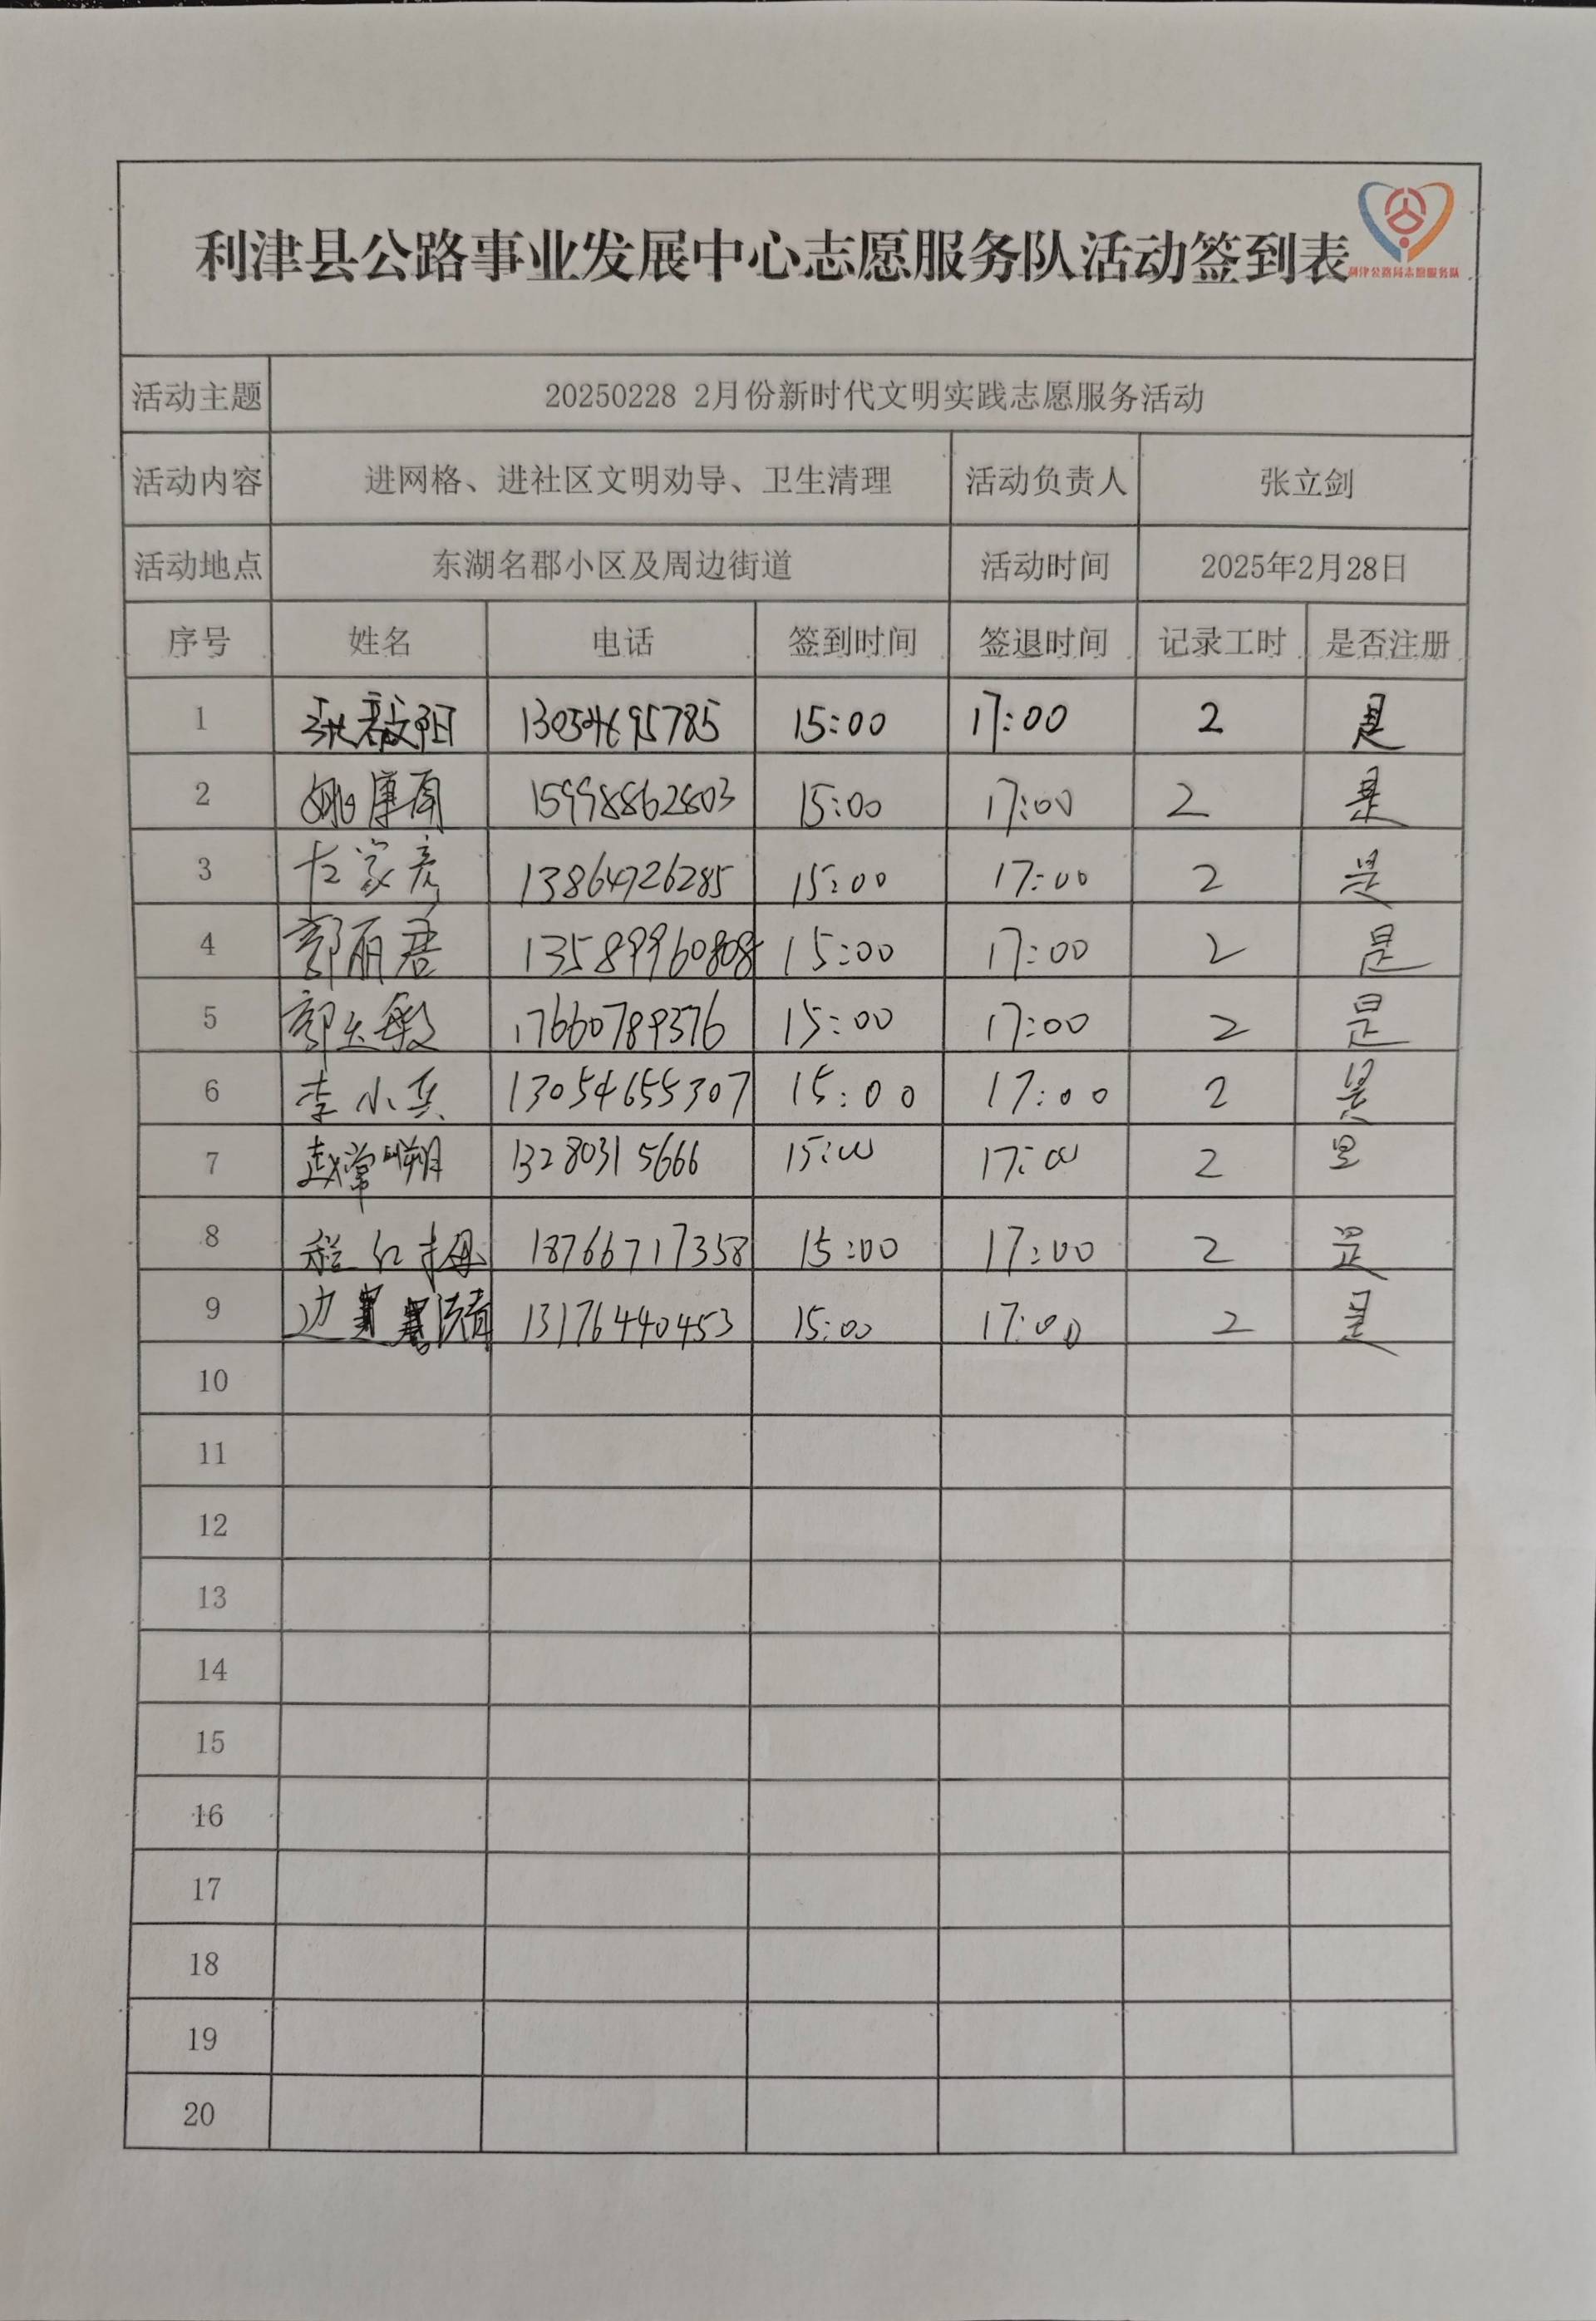 利津县公路事业发展中心志愿服务队活动签到表
利津公路局志愿服务队
活动主题 20250228 2月份新时代文明实践志愿服务活动
活动内容 进网格、进社区文明劝导、卫生清理 活动负责人 张立剑
活动地点 东湖名郡小区及周边街道 活动时间 2025年2月28日
序号 姓名 电话 签到时间 签退时间 记录工时 是否注册
1 15:00 17:00 2 是
2 15998862803 15:00 17:00 2 是
3 13864726285 15:00 17:00 2 是
4 郭丽君 13589960808 15:00 17:00 2 是
5 17660789376 15:00 17:00 2 是
6 李小兵 13054655307 15:00 17:00 2 是
7 13280315666 15:00 17:00 2 是
8 程红梅 18766717358 15:00 17:00 2 是
9 边 13176440453 15:00 17:00 2 是
10
11
12
13
14
15
16
17
18
19
20